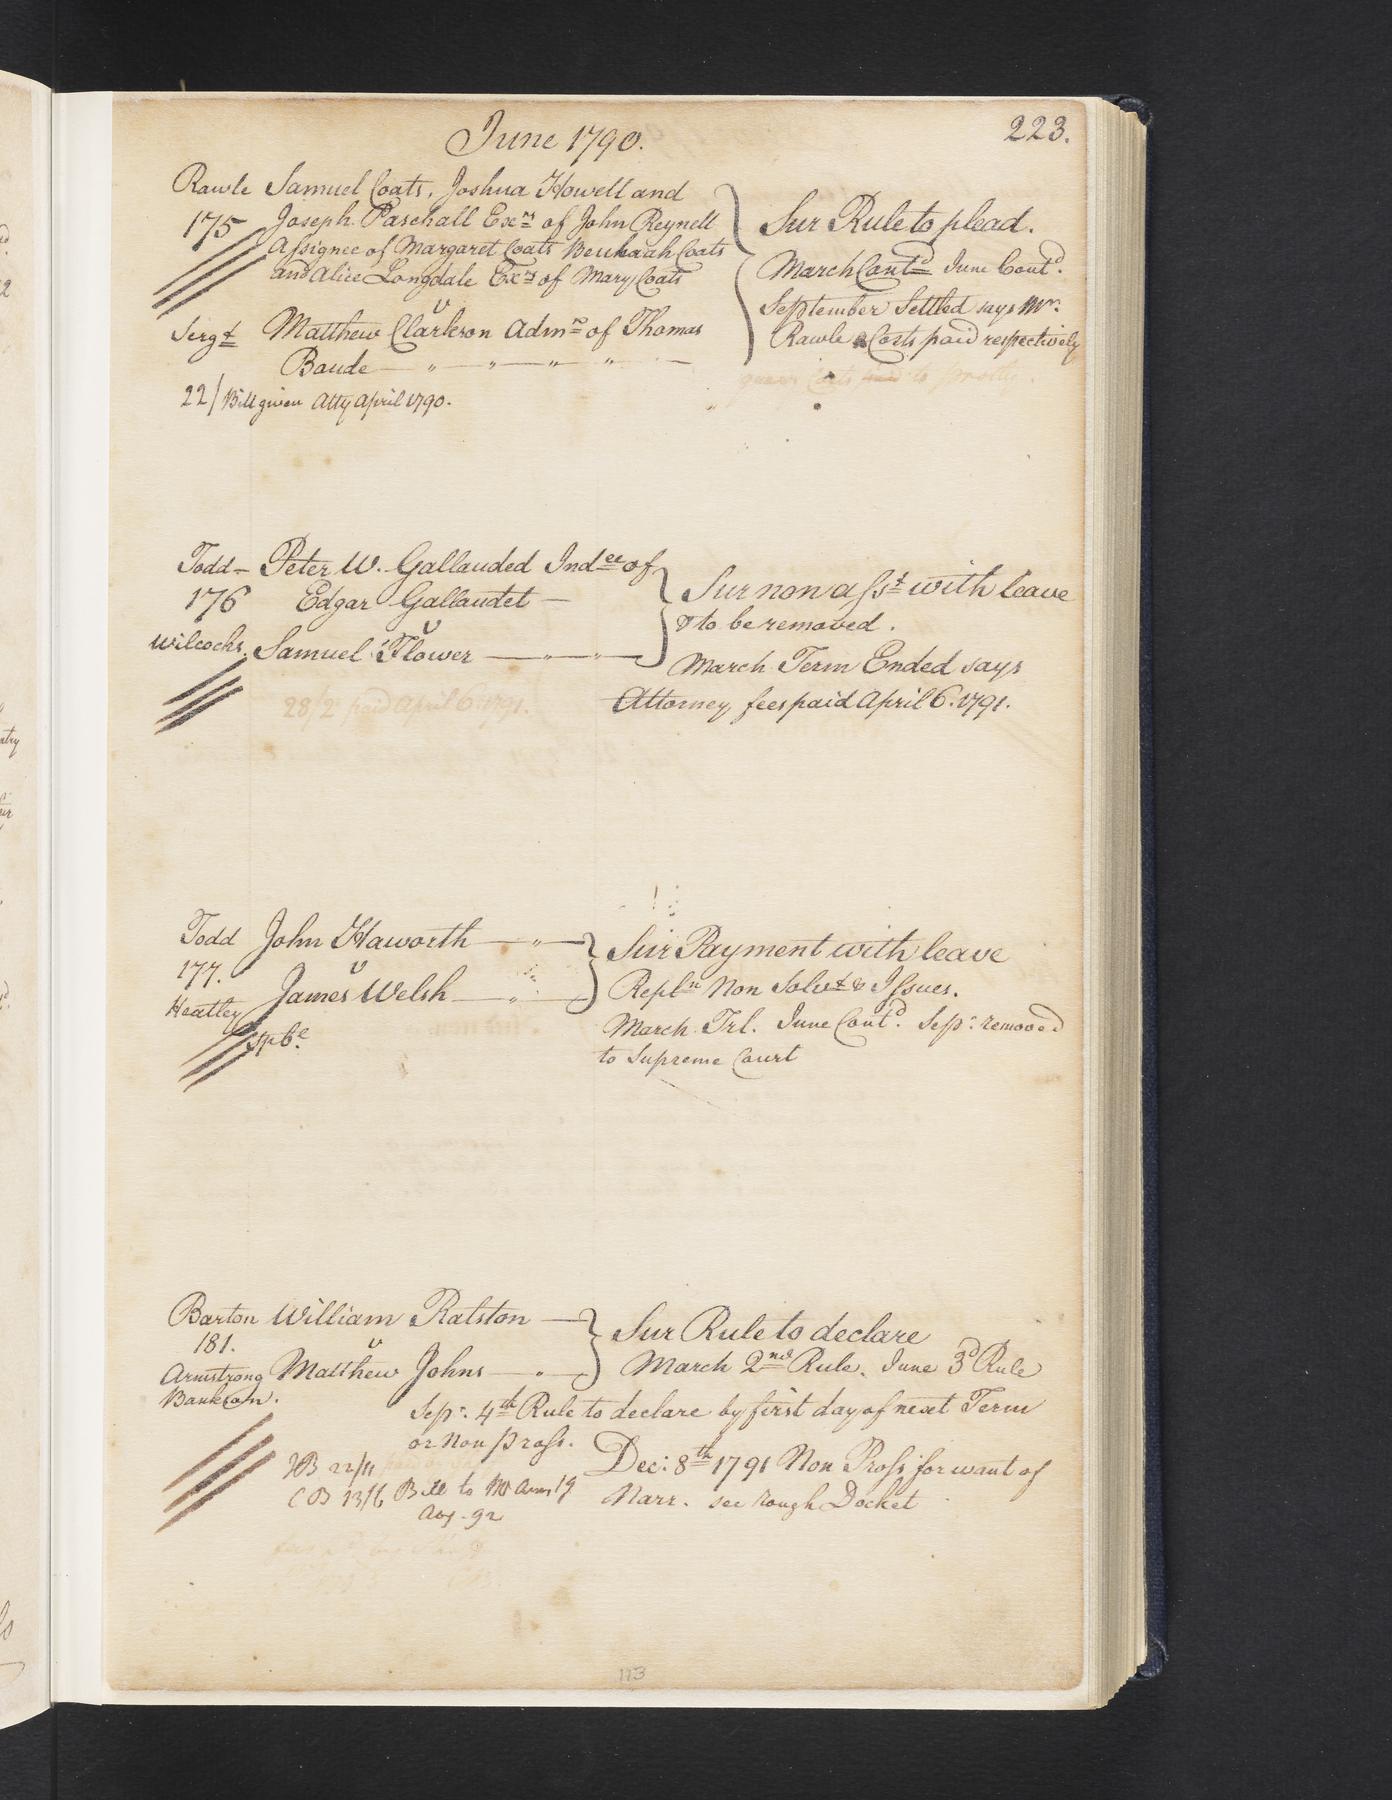 June 1790.
223.
Rawle Samuel Coats, Joshua Howell and
175 Joseph Paschall Exrs of John Reynell
Assignee of Margaret Coats Beulah Coats
and Alice Longdale Exrs of Mary Coats
v
Sergt Matthew Clarkson Admr of Thomas
Baude
22/ Bill given Atty April 1790.
Sur Rule to plead.
March Contd June Contd.
September Settled says Mr.
Rawle & Costs paid respectively
Costs paid to
Todd - Peter W. Gallauded Indee of
176 Edgar Gallaudet -
v
Wilcocks. Samuel Flower
28/2 paid April 6. 1791.
Sur non asst with leave
& to be removed.
March Term Ended says
Attorney fees paid April 6. 1791.
Todd John Haworth
177. v
Heatley James Welsh
Sur Payment with leave
Repln Non Solvt & Issues.
March Trl. June Contd. Sepr. removed
to Supreme Court
Barton William Ralston
181. v
Armstrong Matthew Johns
Bankson.
Sur Rule to declare
March 2nd Rule. June 3d Rule
Sepr. 4th Rule to declare by first day of next Term
or Non pross.
Dec: 8th 1791 Non Pross for want of
Narr. see rough Docket
22/11
CB 13/6 Bill to Mr Arms 19
Aug. 92
113